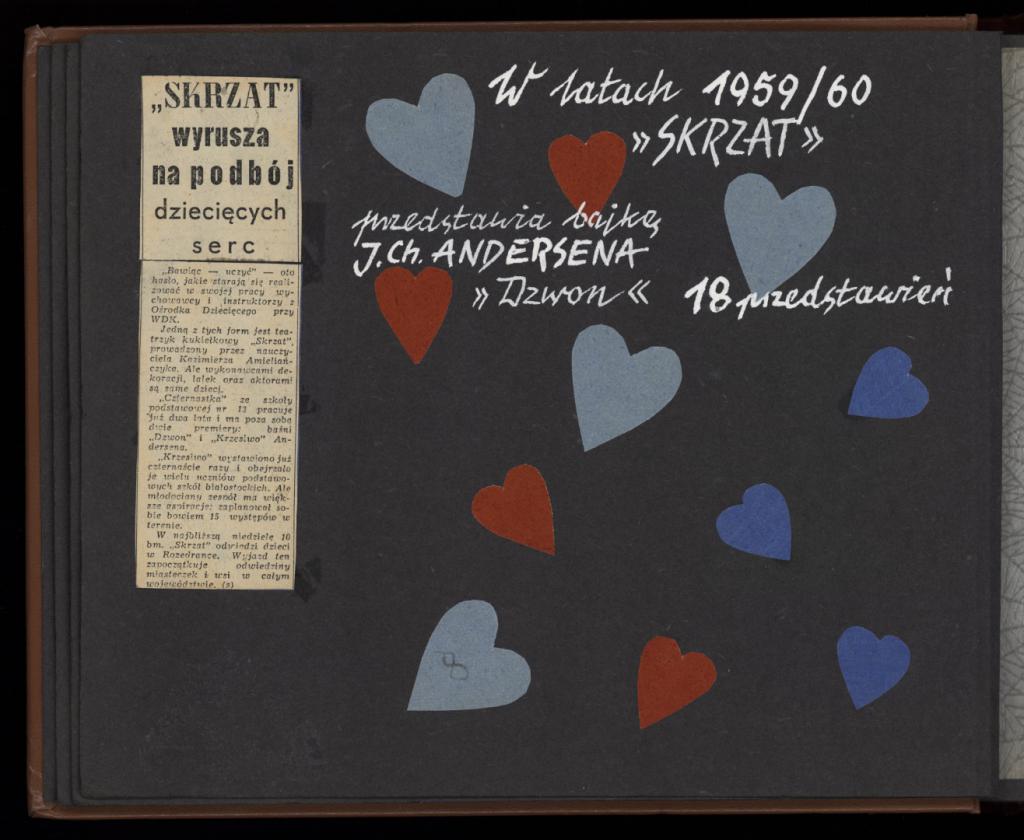 „SKRZAT”
wyrusza
na podbój
dziecięcych
serc
„Bawiąc — uczyć” — oto
hasło, jakie starają się reali-
zować w swojej pracy wy-
chowawcy i instruktorzy z
Ośrodka Dziecięcego przy
WDK.
Jedną z tych form jest tea-
trzyk kukiełkowy „Skrzat”,
prowadzony przez nauczy-
ciela Kazimierza Amieliań-
czyka. Ale wykonawcami de-
koracji, lalek oraz aktorami
są same dzieci.
„Czternastka” ze szkoły
podstawowej nr 13 pracuje
już dwa lata i ma poza sobą
dwie premiery: baśni
„Dzwon” i „Krzesiwo” An-
dersena.
„Krzesiwo” wystawiono już
czternaście razy i obejrzało
je wielu uczniów podstawo-
wych szkół białostockich. Ale
młodociany zespół ma więk-
sze aspiracje: zaplanował so-
bie bowiem 15 występów w
terenie.
W najbliższą niedzielę 10
bm. „Skrzat” odwiedzi dzieci
w Rozedrance. Wyjazd ten
zapoczątkuje odwiedziny
miasteczek i wsi w całym
województwie. (s)
W latach 1959/60
»SKRZAT»
przedstawia bajkę
J.Ch. ANDERSENA
»Dzwon« 18 przedstawień
8